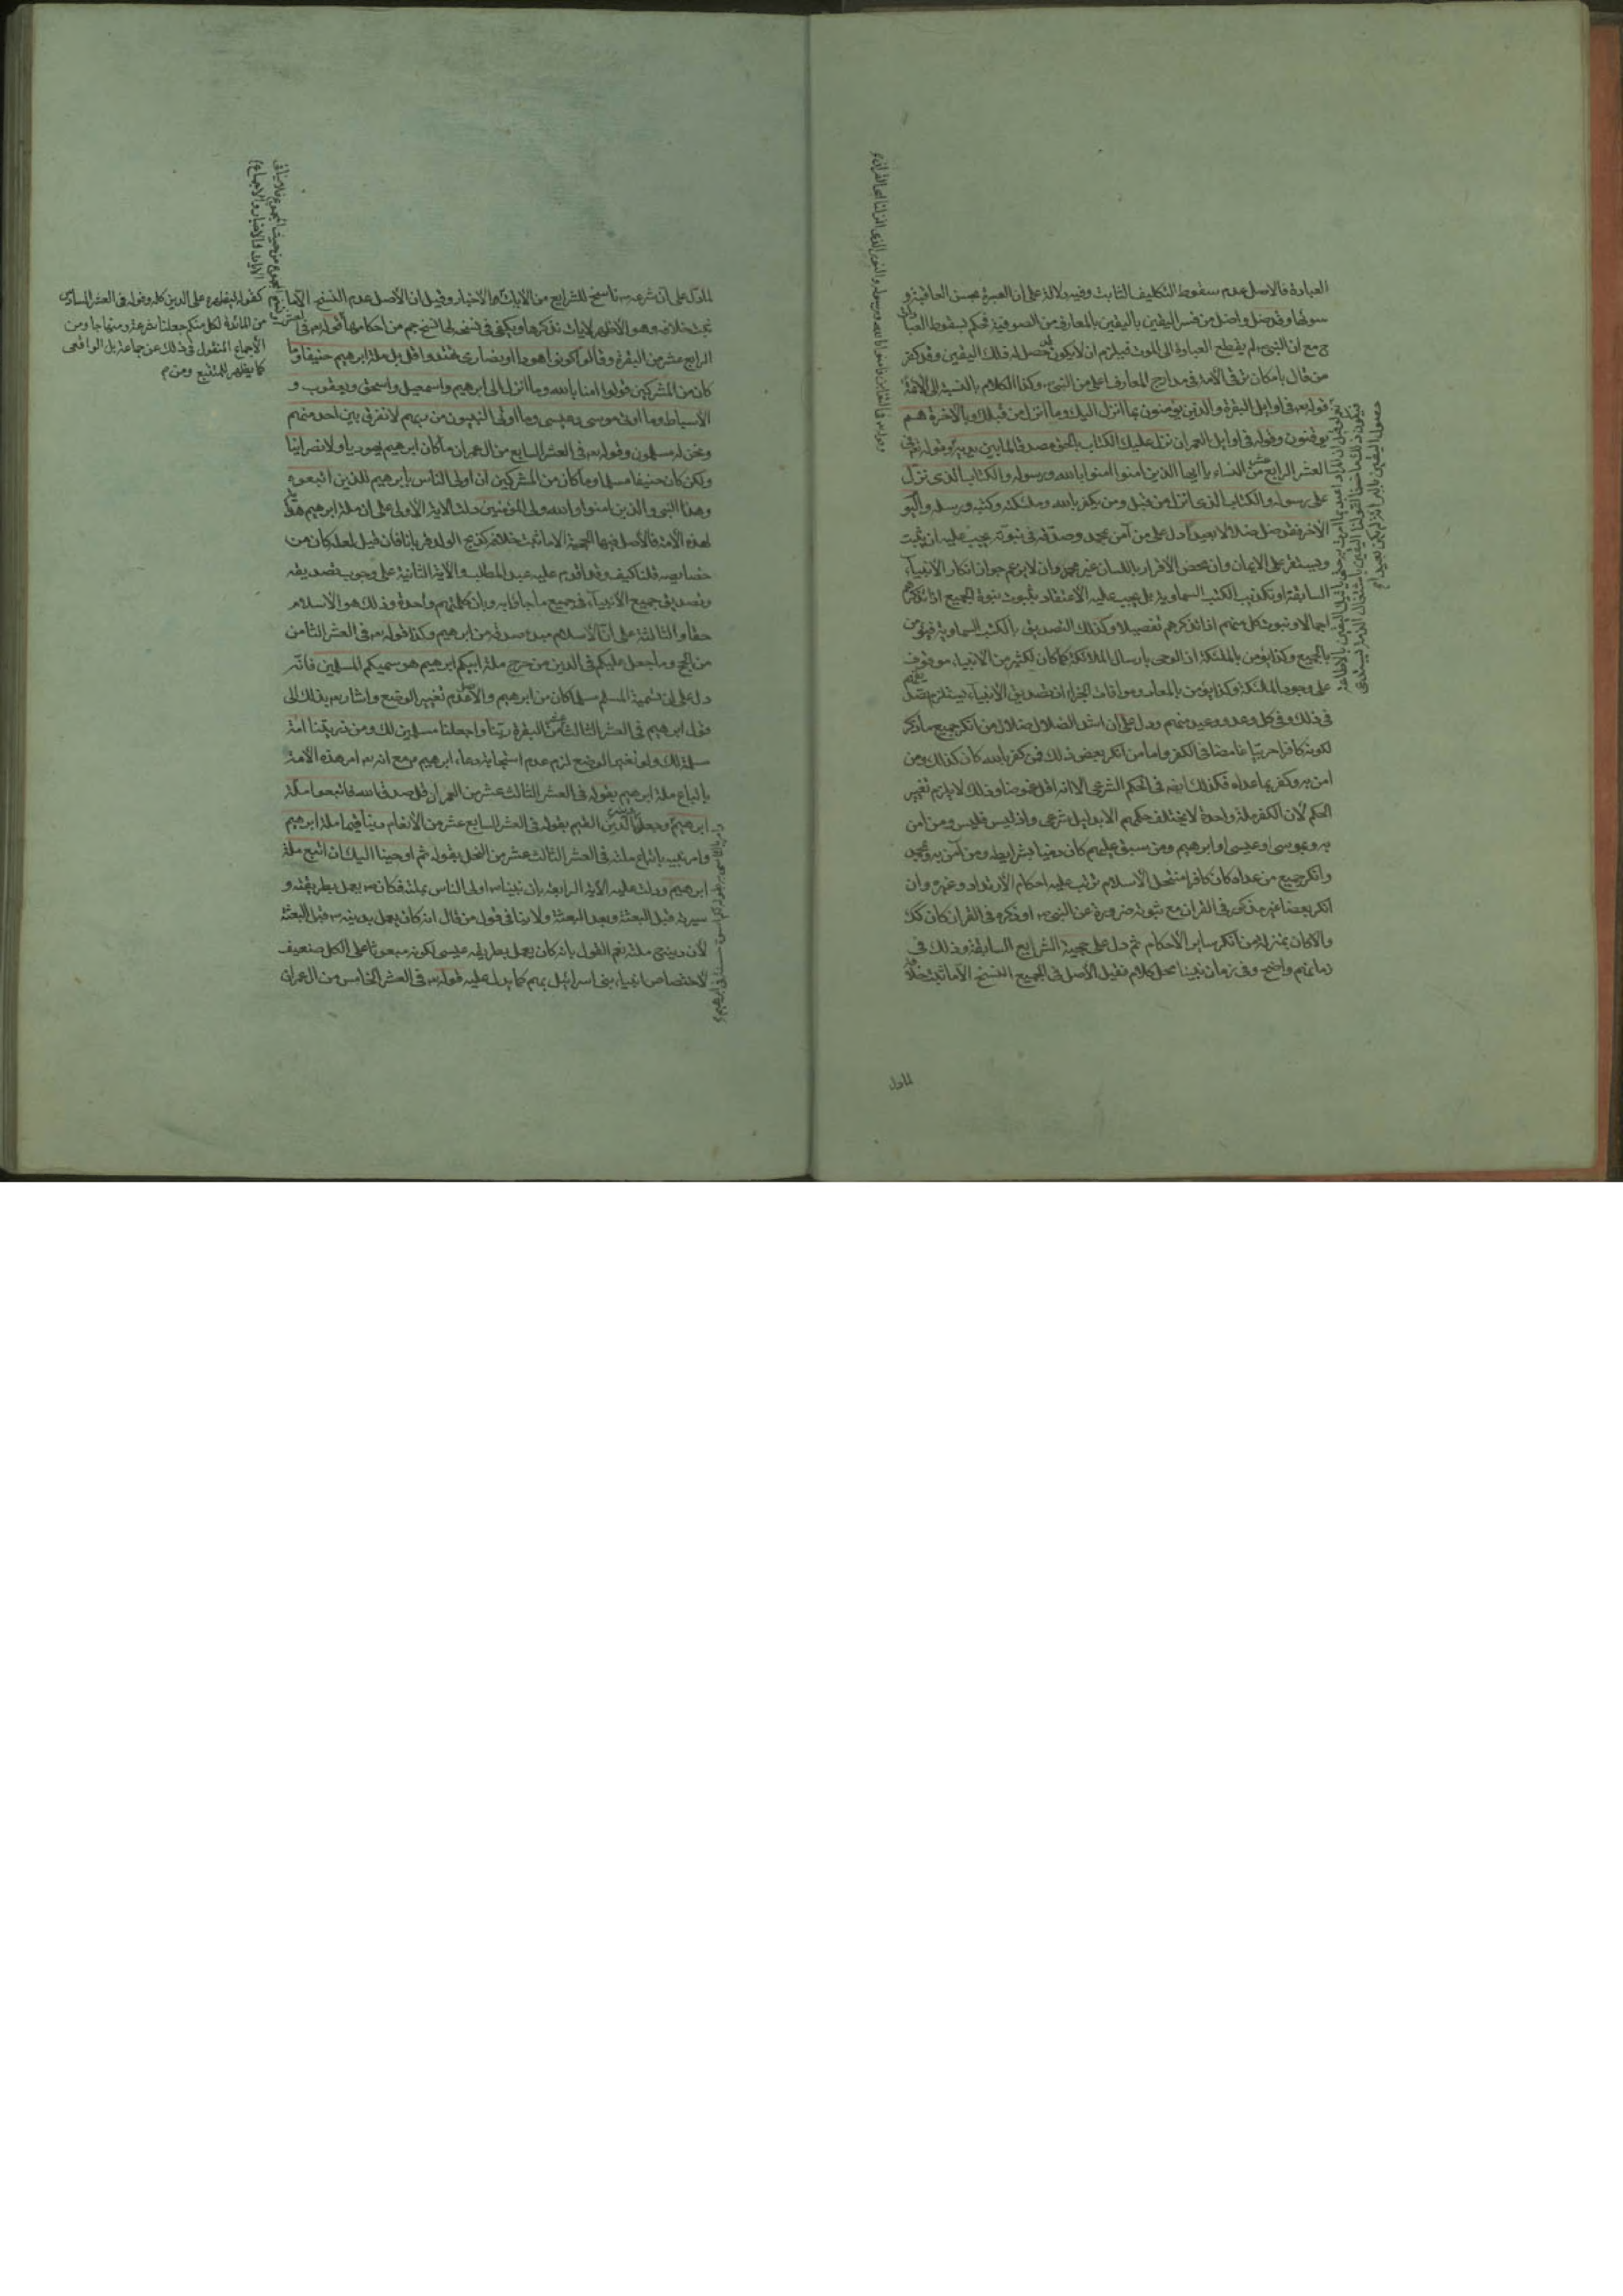 العبادة فالاصل عدم سقوط التكليف الثابت وفيه دلالة على ان العبرة بحسن العاقبة و
سوئها وقد ضل واضل من فسر اليقين باليقين بالمعارف من الصوفية فحكم بسقوط العبادات
ح مع ان النبي لم يقطع العبادة الى الموت فيلزم ان لا يكون حصل له ذلك اليقين وقد كفر
من قال بامكان ترقى الأمة فى مدارج المعارف اعلى من النبي وكذا الكلام بالنسبة الى الأئمة
قوله تع فى اوايل البقرة والذين يؤمنون بما انزل اليك وما انزل من قبلك وبالآخرة هم
يوقنون وقوله فى اوايل ال عمران نزل عليك الكتاب بالحق مصدقا لما بين يديه وقوله تع فى
العشر الرابع عشر من النساء يا ايها الذين امنوا امنوا بالله ورسوله والكتاب الذى نزل
على رسوله والكتاب الذى انزل من قبل ومن يكفر بالله وملئكته وكتبه ورسله واليوم
الآخر فقد ضل ضلالا بعيدا دل على من آمن بمحمد وصدقه فى نبوته يجب عليه ان يثبت
ويستقر على الايمان وان محض الأقرار باللسان غير مجز وان لا يزعم جواز انكار الأنبياء
السابقة او تكذيب الكتب السماوية بل يجب عليه الاعتقاد بثبوت نبوة الجميع اذا تذكرهم
اجمالا ونبوت كل منهم اذا تذكرهم تفصيلا وكذلك التصديق بالكتب السماوية فيؤمن
بالجميع وكذا يؤمن بالملئكة اذ الوحى بارسال الملائكة كما كان لكثير من الانبياء موقوف
على وجود الملئكة وكذا يؤمن بالمعاد ومواقات الجزاء اذ تصديق الأنبياء يستلزم تصديقهم
فى ذلك وفى كل وعد ووعيد منهم ودل على ان اشد الضلال ضلال من انكر جميع ما ذكر
لكونه كافرا حربيا غامضا فى الكفر واما من انكر بعض ذلك فمن كفر بالله كان كذلك ومن
امن به وكفر بما عداه فكذلك ايضه فى الحكم الشرعى الا انه اقل غموضا وذلك لا يلزم تغيير
الحكم لأن الكفر ملة واحدة لا يختلف حكمهم الا بدليل شرعى واذ ليس فليس ومن امن
به وبموسى او عيسى او ابرهيم ومن سبق عليهم كان ذميا بشرايطه ومن آمن به وبمحمد
وانكر جميع من عداه كان كافرا منتحل الأسلام ترتب عليه احكام الأرتداد وغيره وان
انكر بعضا غير مذكور فى القران مع ثبوته ضرورة عن النبي او ذكره فى القران كان كك
والا كان بمنزلة من انكر ساير الأحكام ثم دل على حجية الشرايع السابقة وذلك فى
زمانهم واضح وفى زمان نبينا محل كلام فقيل الأصل فى الجميع النسخ الا ما ثبت خلافه
لما دل
لما دل على ان شرعه ناسخ للشرايع من الآيات والاخبار وقيل ان الأصل عدم النسخ الا ما
ثبت خلافه وهو الأظهر لآيات نذكرها ويكفى فى نسخه لها نسخ جم من احكامها قوله تع فى
الرابع عشر من البقرة وقالوا كونوا هودا او نصارى تهتدوا قل بل ملة ابرهيم حنيفا وما
كان من المشركين قولوا امنا بالله وما انزل الى ابرهيم واسمعيل واسحق ويعقوب و
الأسباط وما اوتى موسى وعيسى وما اوتى النبيون من ربهم لا نفرق بين احد منهم
ونحن له مسلمون وقوله تع فى العشر السابع من ال عمران ما كان ابرهيم يهوديا ولا نصرانيا
ولكن كان حنيفا مسلما وما كان من المشركين ان اولى الناس بابرهيم للذين اتبعوه
وهذا النبى والذين امنوا والله ولى المؤمنين دلت الآية الأولى على ان ملة ابرهيم
لهذه الأمة فالأصل فيها الحجية الا ما ثبت خلافه كذبح الولد قربانا فان قيل لعله كان من
خصايصه قلنا كيف وقد اقدم عليه عبد المطلب والآية الثانية على وجوب تصديقه
وتصديق جميع الأنبياء فى جميع ما جاؤا به وبان كلمتهم واحدة وذلك هو الاسلام
حقا والثالثة على ان الأسلام مبدء صدقه من ابرهيم وكذا قوله تع فى العشر الثامن
من الحج وما جعل عليكم فى الدين من حرج ملة ابيكم ابرهيم هو سميكم المسلمين فانه
دل على ان تسمية المسلم مسلما كان من ابرهيم والأصل عدم تغيير الوضع واشار تع بذلك الى
قول ابرهيم فى العشر الثالث عشر من البقرة ربنا واجعلنا مسلمين لك ومن ذريتنا امة
مسلمة لك ولو تغير الوضع لزم عدم استجابة دعاء ابرهيم مع انه تع امر هذه الامة
باتباع ملة ابرهيم بقوله فى العشر الثالث عشر من ال عمران قل صدق الله فاتبعوا ملة
ابرهيم وجعلها الدين القيم بقوله فى العشر السابع عشر من الأنعام دينا قيما ملة ابرهيم
وامر نبيه باتباع ملته فى العشر الثالث عشر من النحل بقوله ثم اوحينا اليك ان اتبع ملة
ابرهيم ودلت عليه الآية الرابعة بان نبينا اولى الناس بملته فكان يعمل بطريقته و
سيرته قبل البعثة وبعد البعثة ولا ينافى قول من قال انه كان يعمل بدينه قبل البعثة
لأن دينه ملته نعم القول بانه كان يعمل بطريقه عيسى لكونه مبعوثا على الكل ضعيف
لاختصاص انبياء بنى اسرائيل بهم كما يدل عليه قوله تع فى العشر الخامس من ال عمران
كقوله ليظهره على الدين كله وقوله فى العشر السادس
من المائدة لكل منكم جعلنا شرعة ومنهاجا ومن
الأجماع المنقول فى ذلك عن جماعة بل الواقعى
كما يظهر للمتتبع ومن